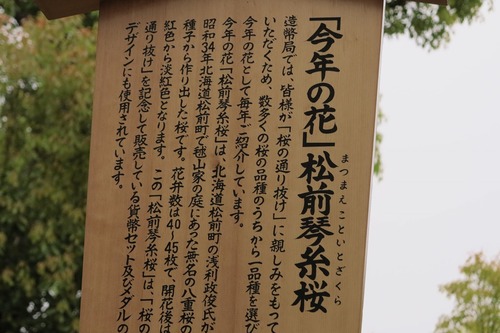 「今年の花」松前琴糸桜
まつまえことひとざくら
造幣局では、皆様が「桜の通り抜け」に親しみをもって
いただくため、数多くの桜の品種のうちから一品種を選び
今年の花として毎年ご紹介しています。
今年の花「松前琴糸桜」は、北海道松前町の浅利政俊氏が
昭和34年北海道松前町で毬山家の庭にあった無名の八重桜の
種子から作り出した桜です。花弁数は40～45枚で、開花後は
紅色から淡紅色となります。この「松前琴糸桜」は、「桜の
通り抜け」を記念して販売している貨幣セット及びメダルの
デザインにも使用されています。